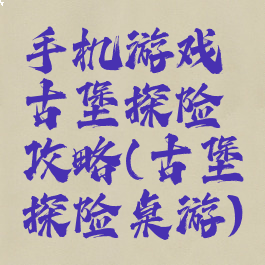 手机游戏
古堡探险
攻略(古堡
探险桌游)